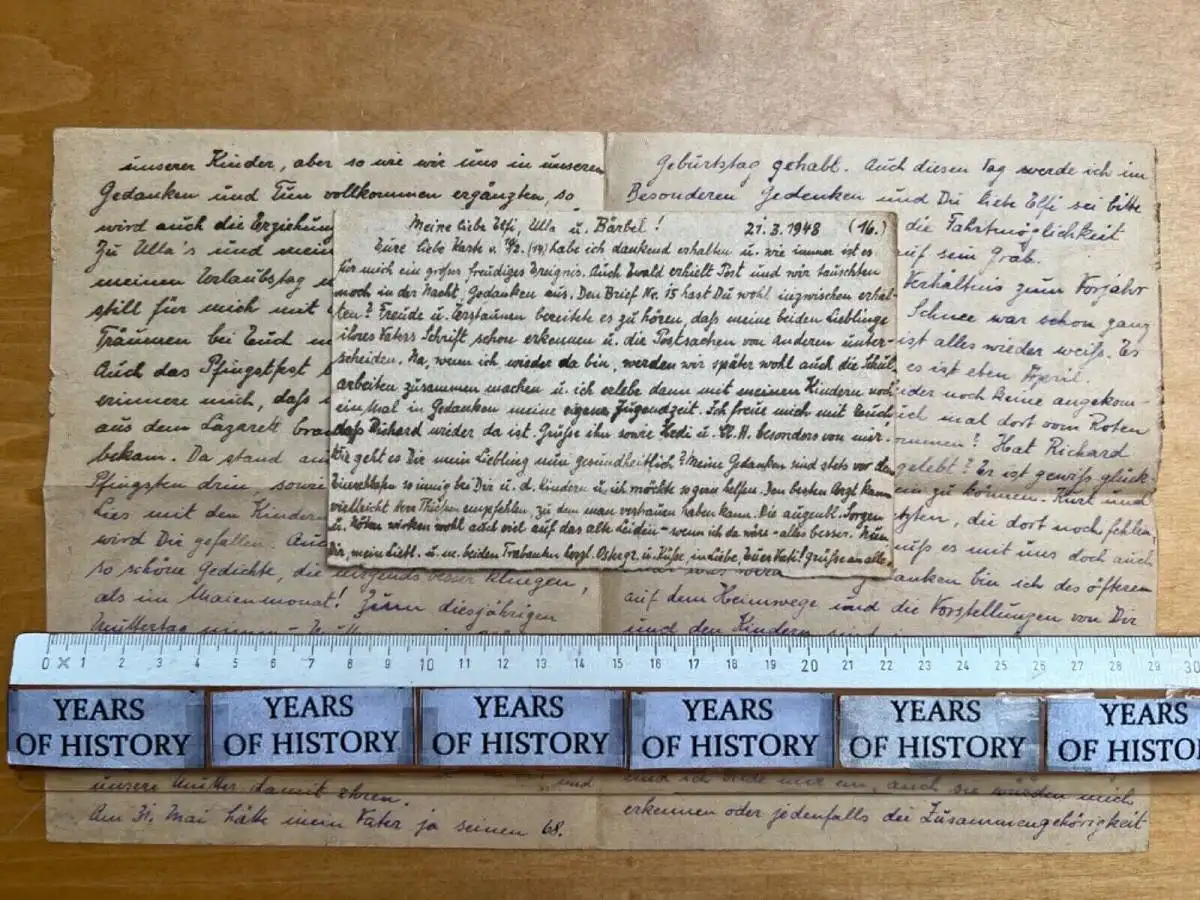 unserer Kinder, aber so wie wir uns in unseren
Gedanken und Tun vollkommen ergänzten, so
wird auch die Erziehun
Zu Ulla's und mein
meinen Urlaubstag
still für mich mit
Träumen bei Euch
Auch das Pfingstfest
erinnere mich, daß
aus dem Lazarett
bekam. Da stand
Pfingsten drin, sowie
Lies mit den Kindern
wird Dir gefallen.
so schöne Gedichte, die nirgends besser klingen,
als im Maienmonat! Zum diesjährigen
Muttertag
unsere Mutter damit ehren.
Am 31. Mai hätte mein Vater ja seinen 68.
Meine liebe Elfi, Ulla u. Bärbel! 21.3.1948 (16.)
Eure liebe Karte v. (14) habe ich dankend erhalten u. wie immer ist es
für mich ein großes freudiges Ereignis. Auch Ewald erhielt Post und wir tauschten
noch in der Nacht Gedanken aus. Den Brief No. 15 hast Du wohl inzwischen erhal-
ten? Freude u. Erstaunen bereitete es zu hören, daß meine beiden Lieblinge
ihres Vaters Schrift schon erkennen u. die Postsachen von anderen unter-
scheiden. Na, wenn ich wieder da bin, werden wir später wohl auch die Schul
arbeiten zusammen machen u. ich erlebe dann mit meinen Kindern noch
einmal in Gedanken meine eigene Jugendzeit. Ich freue mich mit Euch
daß Richard wieder da ist. Grüße ihn sowie Hedi u. besonders von mir.
Wie geht es Dir mein Liebling nun gesundheitlich? Meine Gedanken sind stets vor dem
Einschlafen so innig bei Dir u. d. Kindern u. ich möchte so gern helfen. Den besten Arzt kann
vielleicht Herr empfehlen, zu dem man vertrauen haben kann. Die augenbl. Sorgen
u. Nöten wirken wohl auch viel auf das alte Leiden - wenn ich da wäre - alles besser. Nun
Dir, mein Liebl. u. m. beiden Trabanten herzl. Ostergr. u. Küße, in Liebe, Euer Vati! Grüße an alle.
Geburtstag gehabt. Auch diesen Tag werde ich im
Besonderen Gedenken und Du liebe Elfi sei bitte
die Fahrtmöglichkeit
auf sein Grab.
Verhältnis zum Vorjahr
Schnee war schon ganz
ist alles wieder weiß. Es
es ist eben April.
noch Deine angekom-
ich mal dort vom Roten
ommen? Hat Richard
gelebt? Er ist gewiß glück-
ein zu können. Kurt und
die dort noch fehlen,
muß es mit uns doch auch
anken bin ich des öfteren
auf dem Heimwege und die Vorstellungen von Dir
und den Kindern sind
erkennen oder jedenfalls die Zusammengehörigkeit
0 1 2 3 4 5 6 7 8 9 10 11 12 13 14 15 16 17 18 19 20 21 22 23 24 25 26 27 28 29 30
YEARS OF HISTORY
YEARS OF HISTORY
YEARS OF HISTORY
YEARS OF HISTORY
YEARS OF HISTORY
YEARS OF HISTO